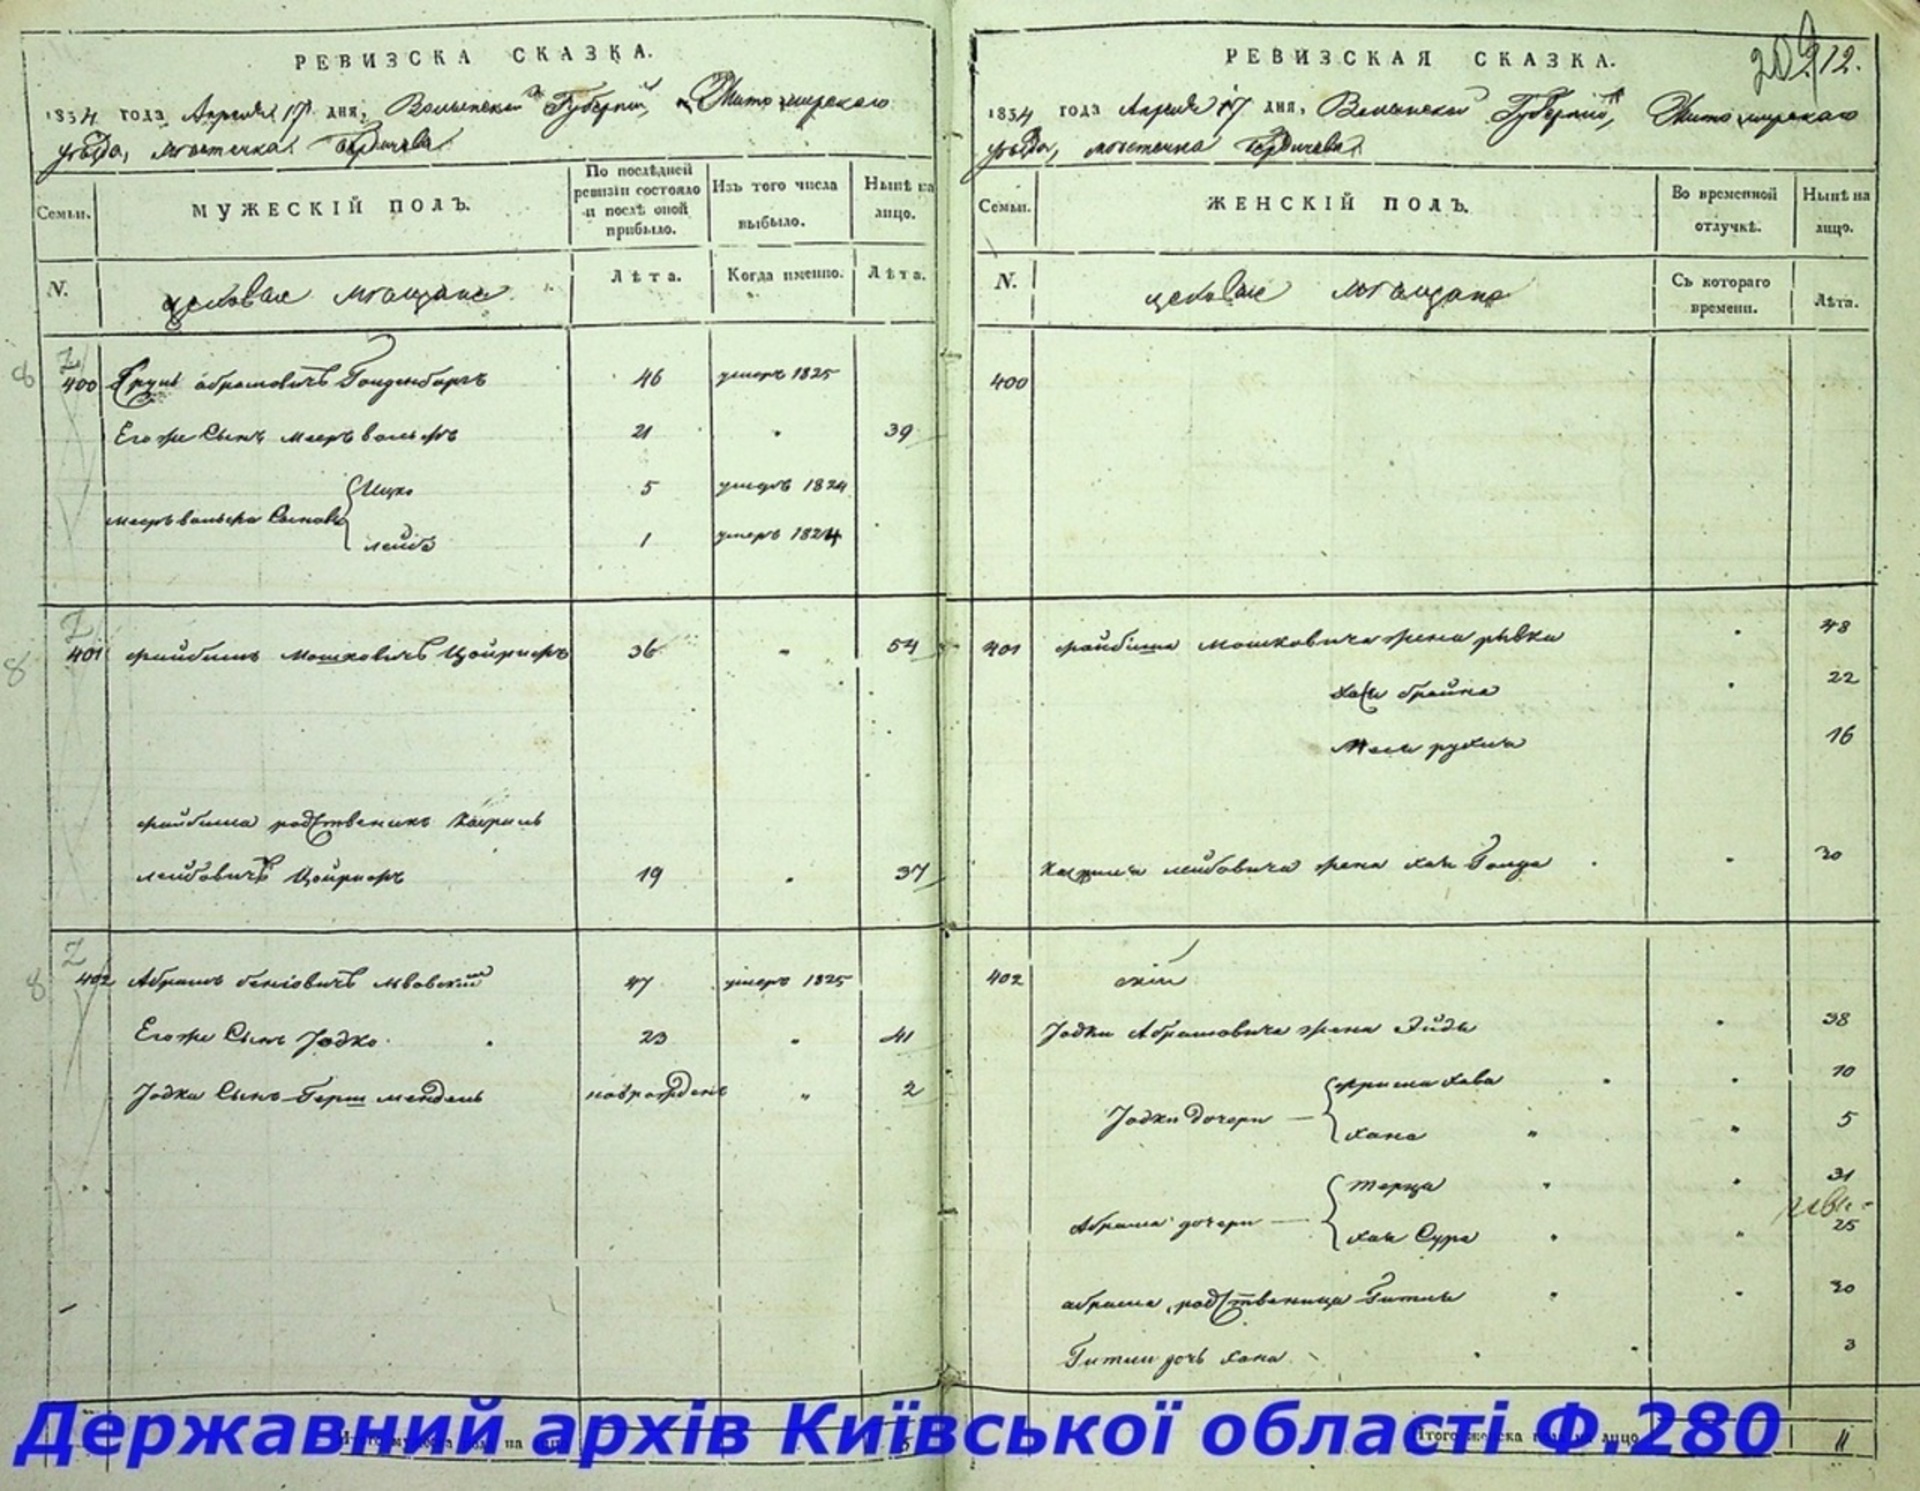 РЕВИЗСКА СКАЗКА.
1834 года Апреля 17 дня, Волынской Губернии, Житомирскаго
уезда, местечка Бердичева
Семьи. МУЖЕСКІЙ ПОЛЪ. По послѣдней ревизіи состояло и послѣ оной прибыло. Изъ того числа выбыло. Нынѣ на лицо.
N. цеховые мещане Лѣта. Когда именно. Лѣта.
400 абрамовичъ Голденбергъ 46 умеръ 1825
Его же Сынъ мееръ вольфъ 21 39
Ицко 5 умеръ 1824
мееръ вольфа Сыновья
лейба 1 умеръ 1824
401 файбишъ Мошковичъ Цойрифъ 36 54
файбиша родственикъ
лейбовичъ Цойрифъ 19 37
402 Абрамъ беніовичъ Львовскій 47 умеръ 1825
Его же Сынъ Іодко 23 41
Іодки Сынъ Герш мендель новрожденъ 2
РЕВИЗСКАЯ СКАЗКА.
209 212.
1834 года Апреля 17 дня, Волынской Губернии, Житомирскаго
уезда, местечка Бердичева
Семьи. ЖЕНСКІЙ ПОЛЪ. Во временной отлучкѣ. Нынѣ на лицо.
N. цеховые мещане Съ котораго времени. Лѣта.
400
401 файбиша Мошковича жена рывка 48
брайна 22
рухля 16
лейбовича жена хая Голда 30
402
Іодки Абрамовича жена Эйдя 38
фрима хава 10
Іодки дочери
хана 5
терца 31
Абрама дочери
хая Сура 25
абрама родственица Гитля 30
Гитли дочь хана 3
11
Державний архів Київської області Ф.280